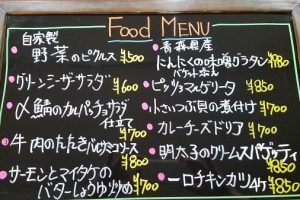 Food MENU
自家製
野菜のピクルス ¥500
グリーンシーザーサラダ ¥600
〆鯖のカルパッチョサラダ
仕立て ¥700
牛肉のたたきバルサミコソース ¥800
サーモンとマイタケの
バターしょうゆ炒め ¥700
青森県産
にんにくの味噌グラタン ¥780
バケット添え
ピッツァマルゲリータ ¥850
小さいつぶ貝の煮付け ¥700
カレーチーズドリア ¥700
明太子のクリームスパゲッティ ¥850
一口チキンカツ4ケ ¥850